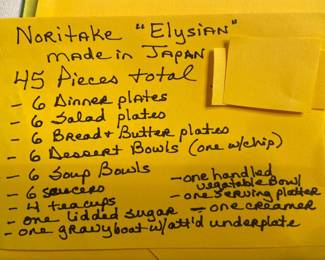 NORITAKE "ELYSIAN"
made in JAPAN
45 Pieces total
- 6 Dinner plates
- 6 Salad plates
- 6 Bread + Butter plates
- 6 Dessert Bowls (one w/chip)
- 6 Soup Bowls
- 6 saucers
- 4 teacups
- one lidded sugar
- one gravyboat w/att'd underplate
- one handled
vegatable Bowl
- one serving platter
- one creamer